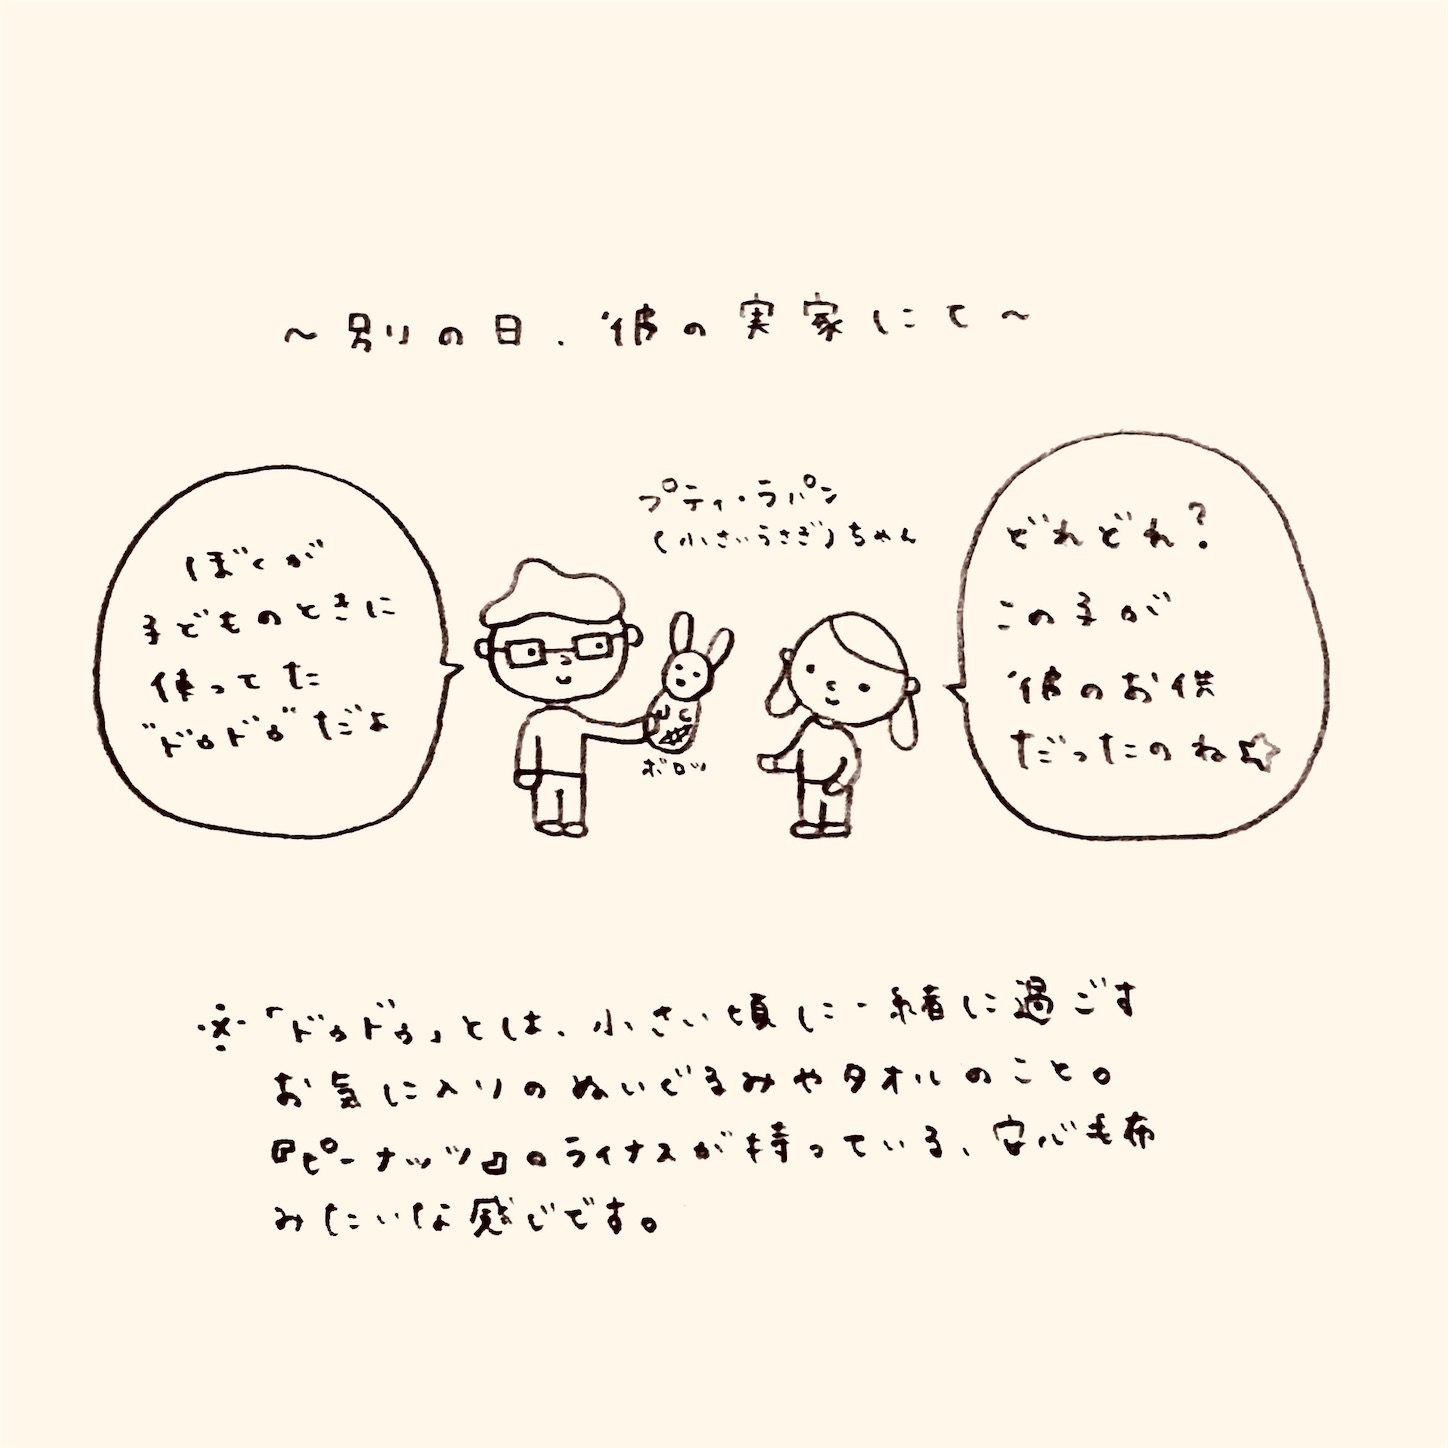 〜別の日、彼の実家にて〜
ぼくが
子どものときに
使ってた
"ドゥドゥ"だよ
プティ・ラパン
(小さいうさぎ)ちゃん
ボロッ
どれどれ?
この子が
彼のお供
だったのね☆
※「ドゥドゥ」とは、小さい頃に一緒に過ごす
お気に入りのぬいぐるみやタオルのこと。
『ピーナッツ』のライナスが持っている、安心毛布
みたいな感じです。